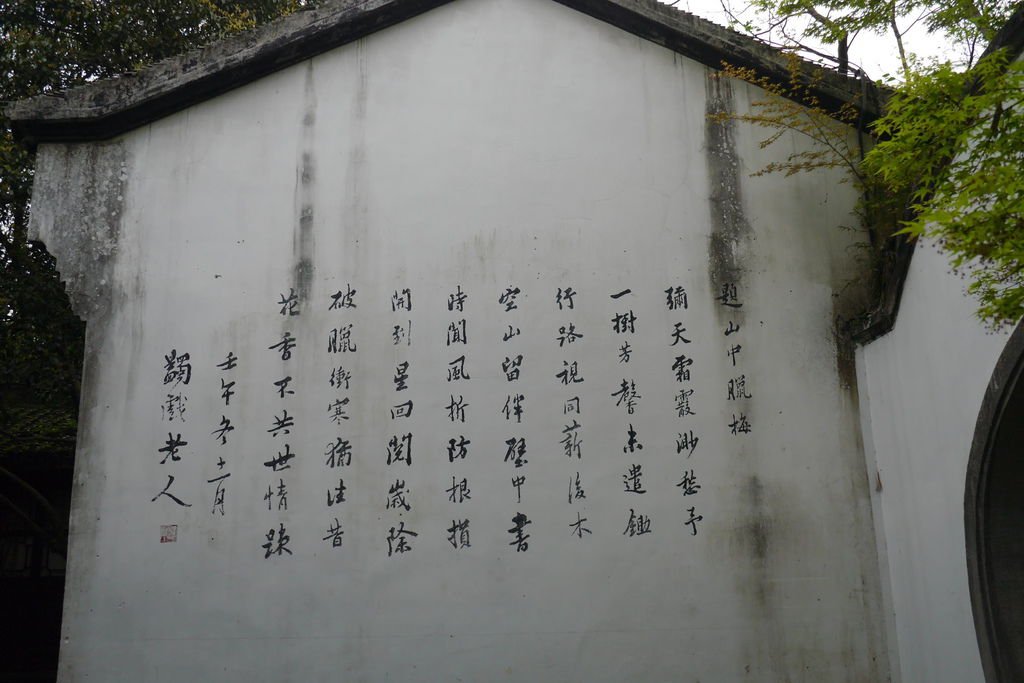 題山中臘梅
彌天霜霰渺愁予
一樹芳馨未遣鋤
行路視同薪後木
空山留伴壁中書
時聞風折防根損
開到星回閱歲除
破臘衝寒猶往昔
花香不共世情疎
壬午冬十一月
蠲戲老人